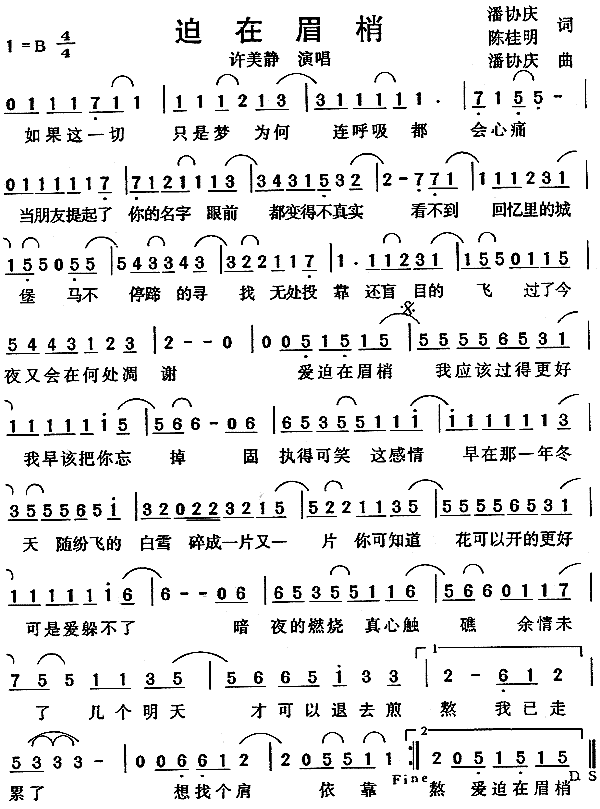 迫在眉梢
1=B 4/4
许美静 演唱
潘协庆
陈桂明 词
潘协庆 曲
0 1 1 1 7 1 1 | 1 1 1 2 1 3 | 3 1 1 1 1 1 1 . | 7 1 5 5 - |
如果这一切 只是梦 为何 连呼吸 都 会心痛
0 1 1 1 1 1 1 7 | 7 1 2 1 1 1 1 3 | 3 4 3 1 5 3 2 | 2 - 7 7 1 | 1 1 1 2 3 1 |
当朋友提起了 你的名字 眼前 都变得不真实 看不到 回忆里的城
1 5 5 0 5 5 | 5 4 3 3 4 3 | 3 2 2 1 1 7 | 1 . 1 1 2 3 1 | 1 5 5 0 1 1 5 |
堡 马不 停蹄 的寻 找 无处投 靠 还盲 目的 飞 过了今
5 4 4 3 1 2 3 | 2 - - 0 | 0 0 5 1 5 1 5 | 5 5 5 5 6 5 3 1 |
夜又会在何处凋 谢 爱迫在眉梢 我应该过得更好
1 1 1 1 1 i 5 | 5 6 6 - 0 6 | 6 5 3 5 5 1 1 i | i 1 1 1 1 1 1 3 |
我早该把你忘 掉 固 执得可笑 这感情 早在那一年冬
3 5 5 5 6 5 i | 3 2 0 2 2 3 2 1 5 | 5 2 2 1 1 3 5 | 5 5 5 5 6 5 3 1 |
天 随纷飞的 白雪 碎成一片又一 片 你可知道 花可以开的更好
1 1 1 1 1 i 6 | 6 - - 0 6 | 6 5 3 5 5 1 1 5 | 5 6 6 0 1 1 7 |
可是爱躲不了 暗 夜的燃烧 真心触 礁 余情未
7 5 5 1 1 3 5 | 5 6 6 5 i 3 3 | 2 - 6 1 2 |
了 几个明天 才可以退去煎 熬 我已走
5 3 3 3 - - | 0 0 6 6 1 2 | 2 0 5 5 1 1 :‖ 2 0 5 1 5 1 5 ‖
累了 想找个肩 依靠 Fine 熬 爱迫在眉梢 D S